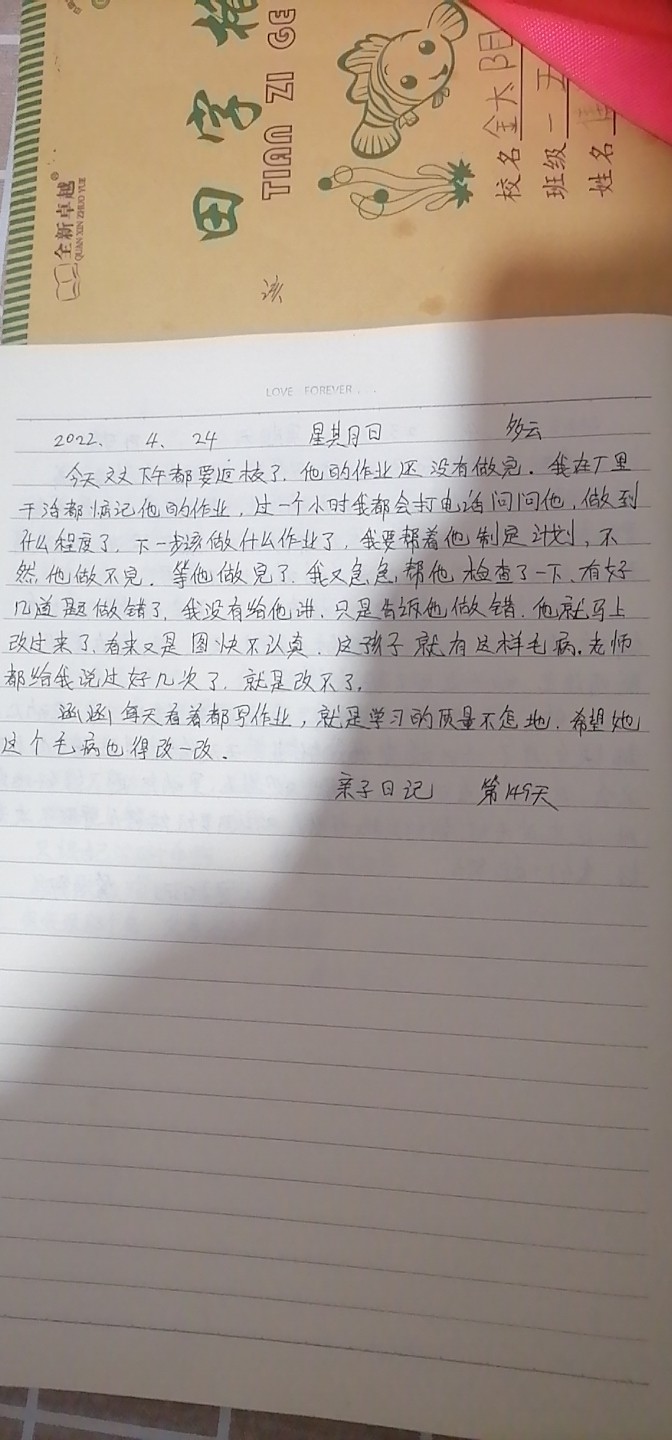 全新卓越®
QUAN XIN ZHUO YUE
田字格
TIAN ZI GE
校名 金太阳
班级 一 五
姓名
LOVE FOREVER
2022. 4. 24 星期日 多云
今天文文下午都要返校了. 他的作业还没有做完. 我在厂里
干活都惦记他的作业, 过一个小时我都会打电话问问他, 做到
什么程度了, 下一步该做什么作业了, 我要帮着他制定计划, 不
然他做不完. 等他做完了, 我又急急帮他检查了一下、有好
几道题做错了, 我没有给他讲. 只是告诉他做错. 他就马上
改过来了, 看来又是图快不认真. 这孩子就有这样毛病. 老师
都给我说过好几次了, 就是改不了.
涵涵每天看着都写作业, 就是学习的质量不怎地. 希望她
这个毛病也得改一改.
亲子日记 第149天